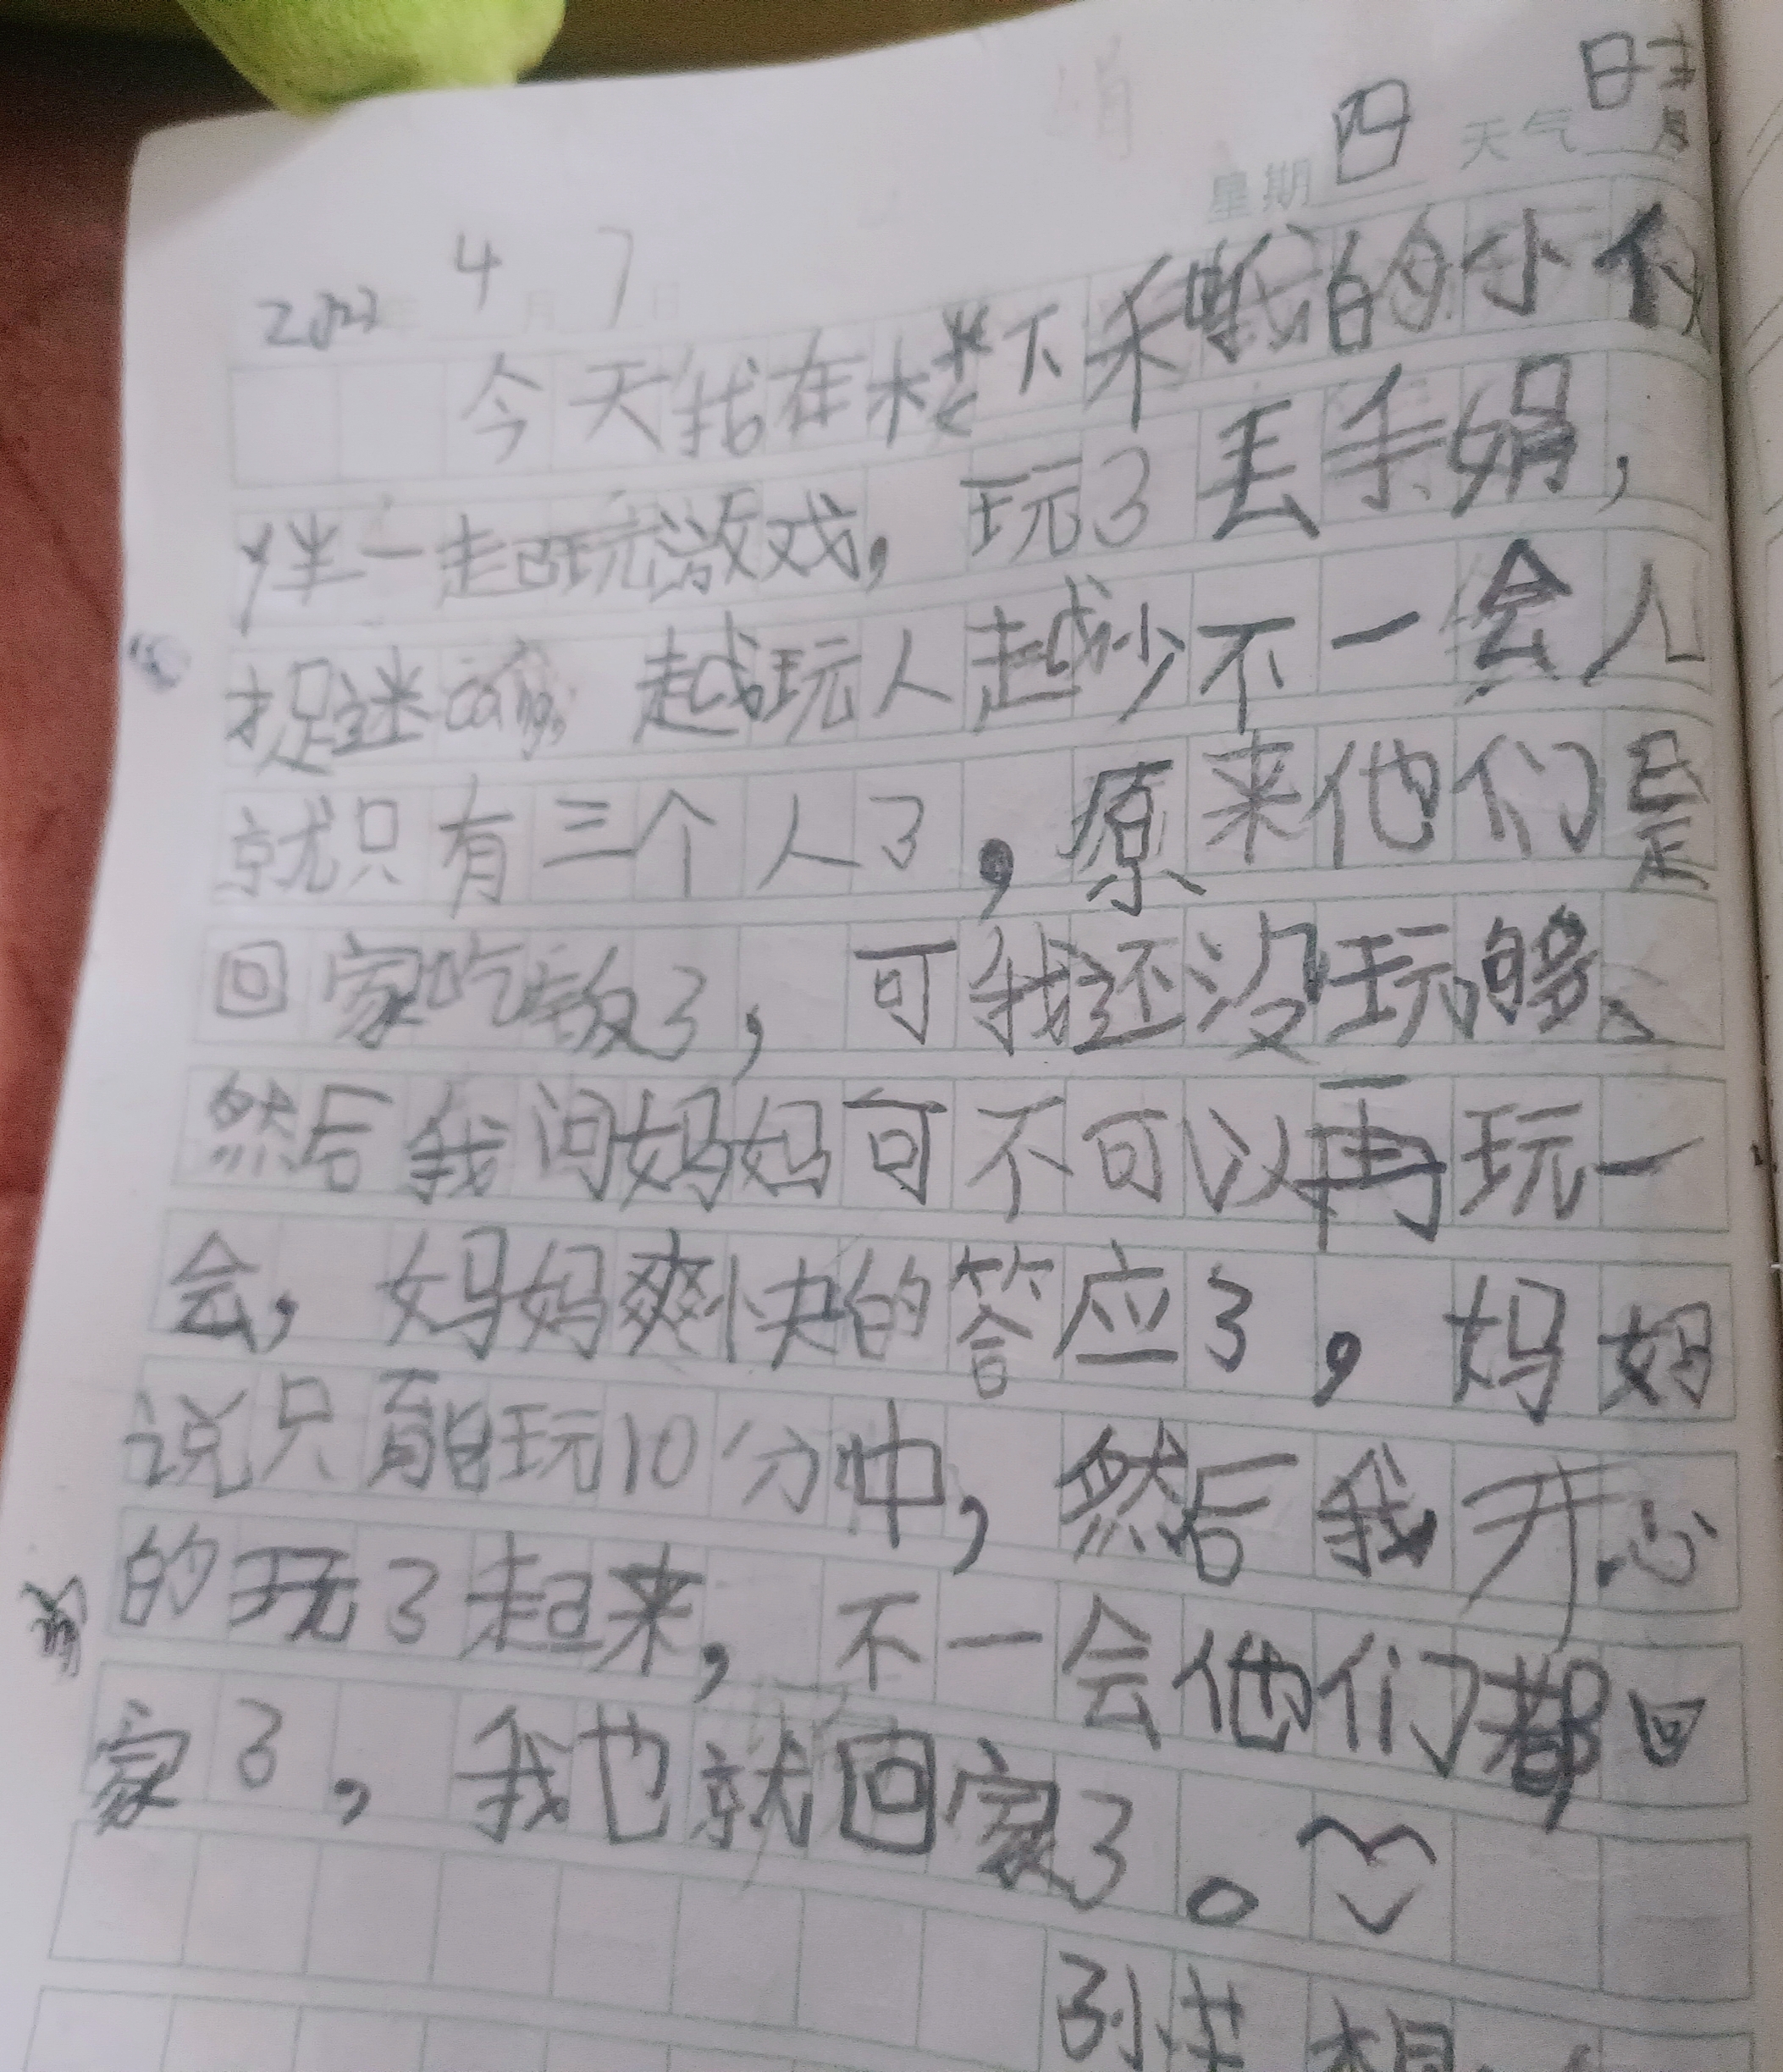 星期四 天气晴
2022年4月7日
今天我在楼下和我的小伙
伴一起玩游戏，玩了丢手娟，
捉迷cáng，越玩人越少不一会儿
就只有三个人了，原来他们是
回家吃饭了，可我还没玩够、
然后我问妈妈可不可以再玩一
会，妈妈爽快的答应了，妈妈
说只能玩10分忠，然后我开心
的玩了起来，不一会他们都回
家了，我也就回家了。